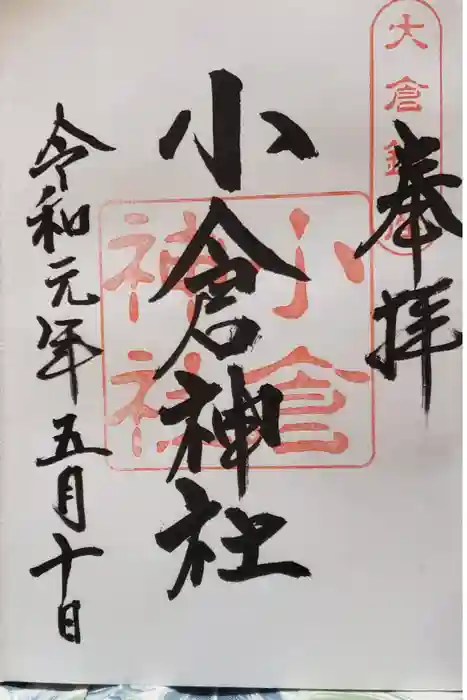 大倉
奉拝
小倉神社
小倉
神社
令和元年五月十日